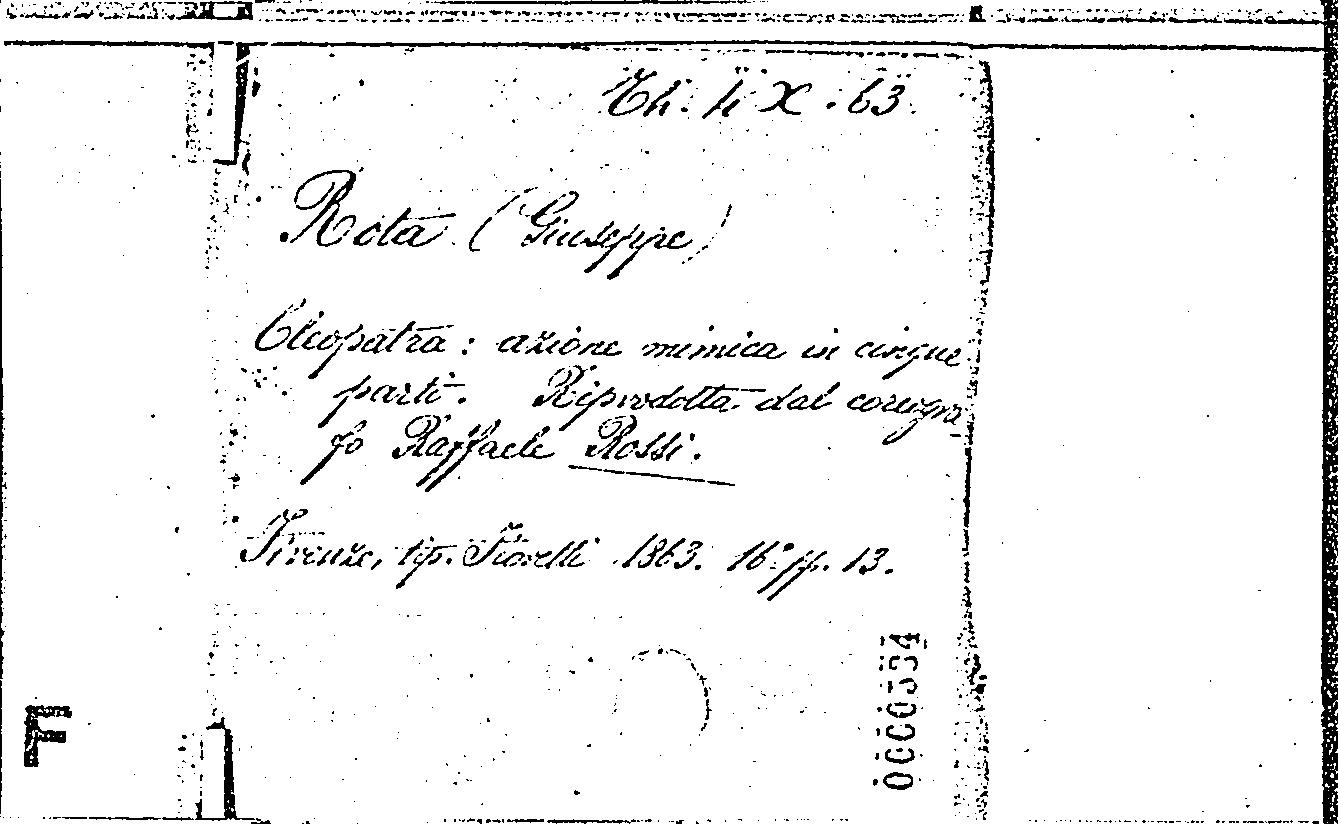 Th. 4 X. 63
Rota (Giuseppe)
Cleopatra: azione mimica in cinque
parti. Riprodotta dal coreogra
fo Raffaele Rossi.
Firenze, tip. Fioretti 1863. 16° pp. 13.
0000334
F